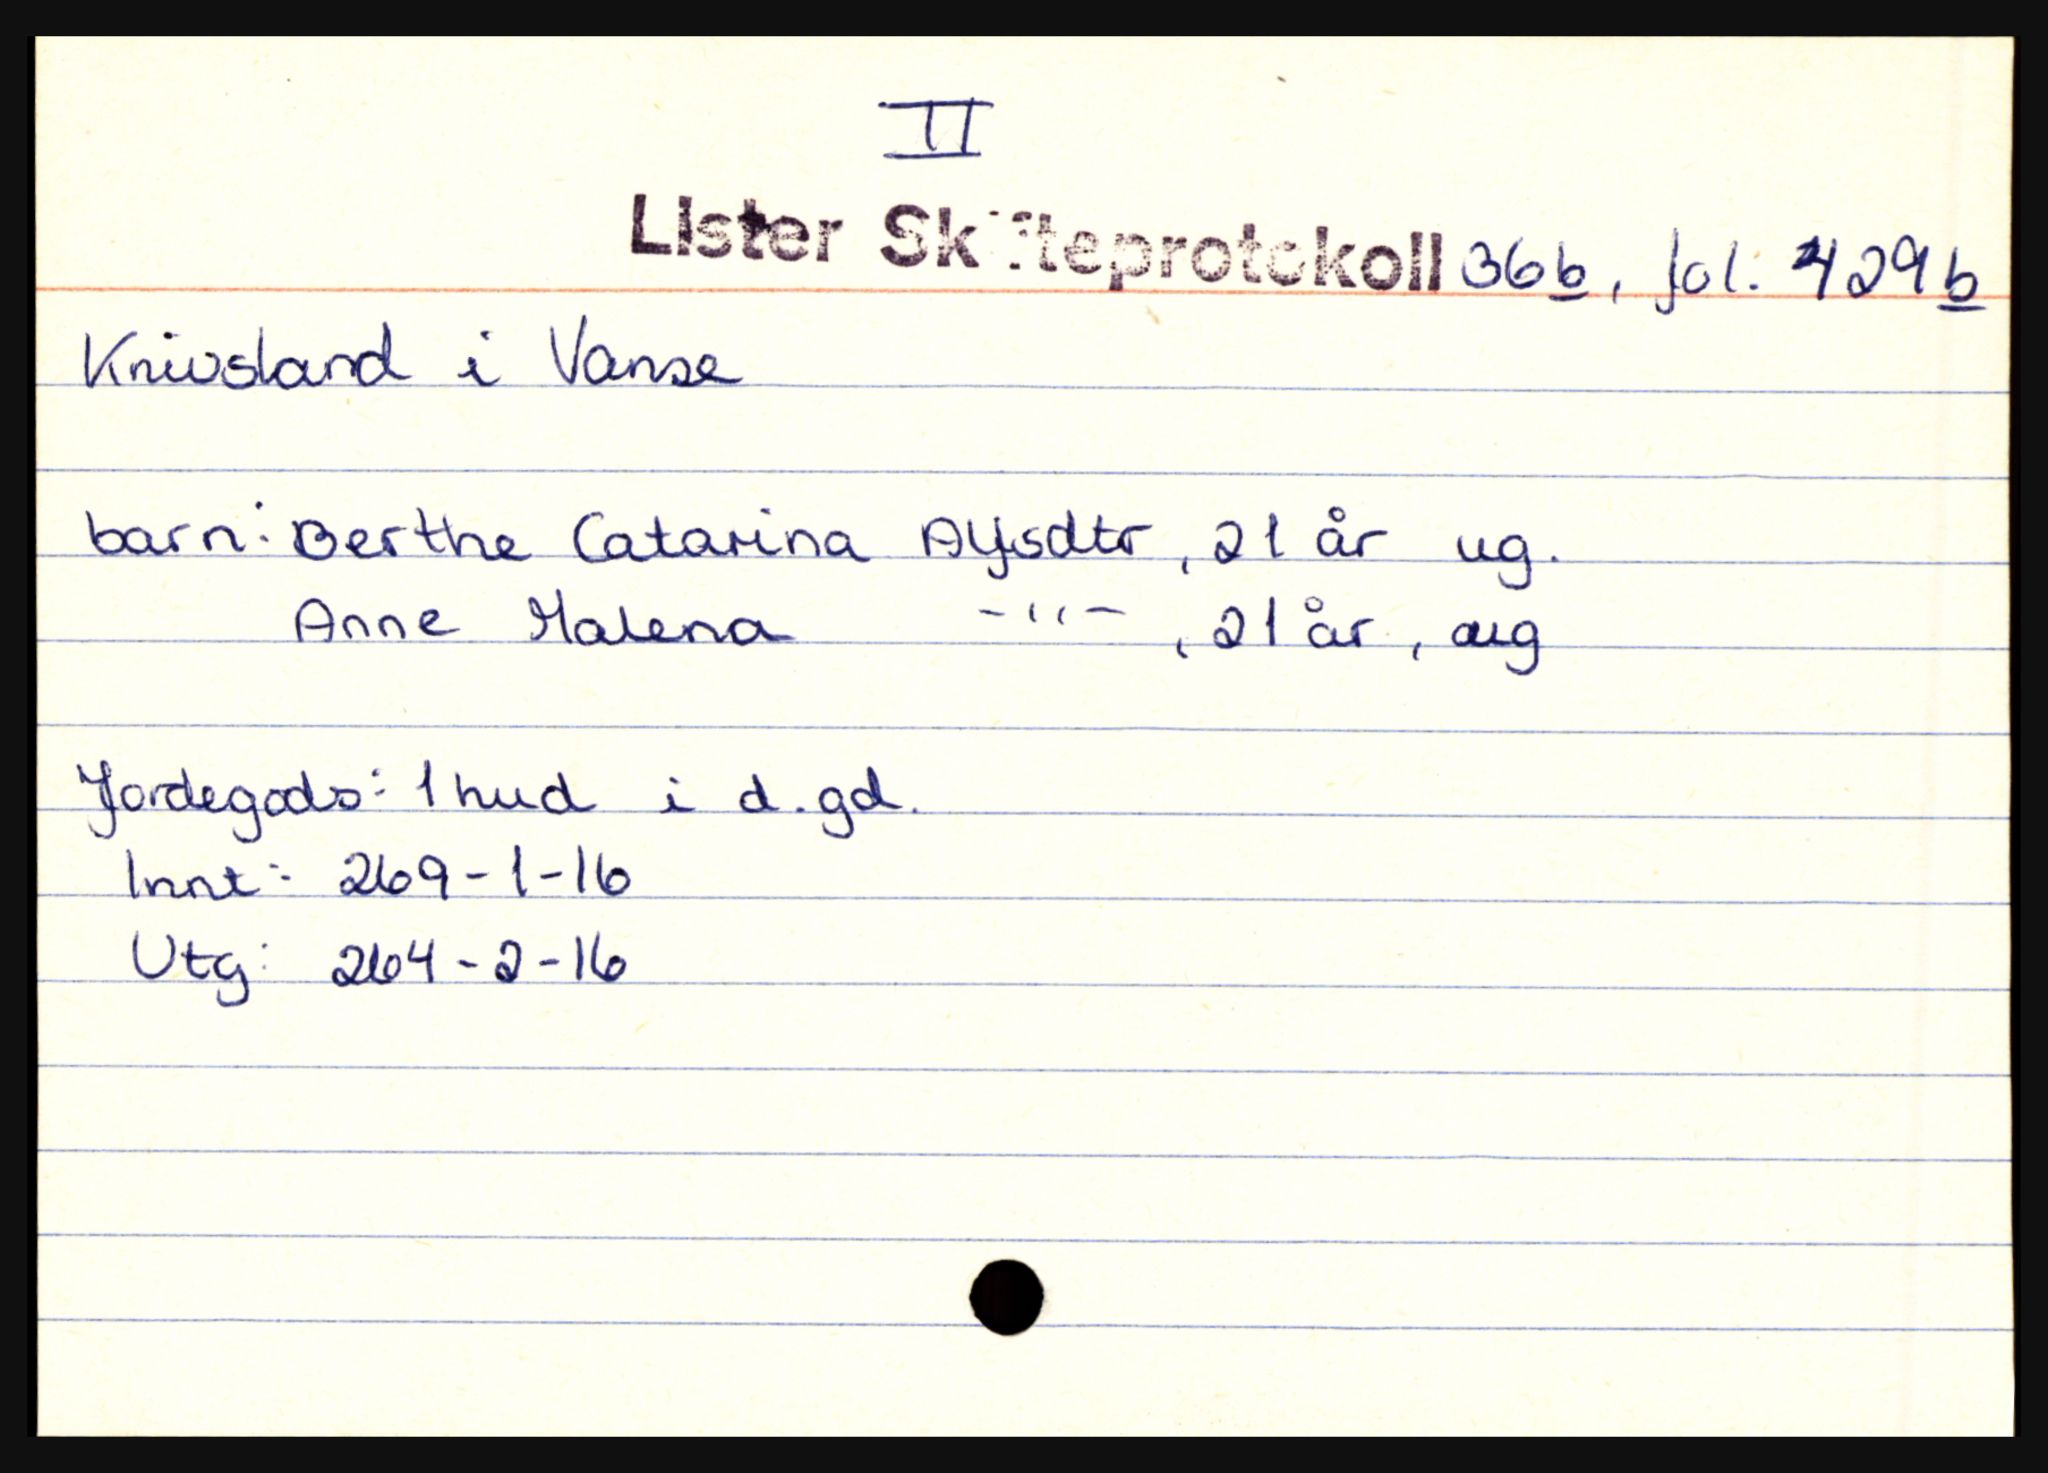 II
Lister Skifteprotokoll 36b, fol. 429b
Knivsland i Vanse
barn: Berthe Catarina Alfsdtr, 21 år ug.
Anne Malena -"-, 21 år, ug
Jordegods: 1 hud i d. gd.
Innt: 269-1-16
Utg: 264-2-16